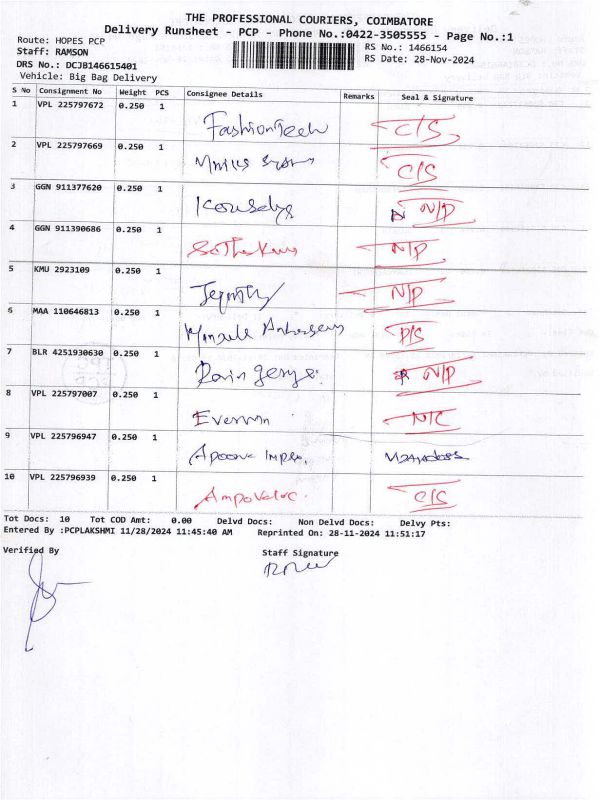 THE PROFESSIONAL COURIERS, COIMBATORE
Delivery Runsheet - PCP - Phone No.:0422-3505555 - Page No.:1
Route: HOPES PCP RS No.: 1466154
Staff: RAMSON RS Date: 28-Nov-2024
DRS No.: DCJB146615401
Vehicle: Big Bag Delivery
S No Consignment No Weight PCS Consignee Details Remarks Seal & Signature
1 VPL 225797672 0.250 1 FashionTech C/S
2 VPL 225797669 0.250 1 C/S
3 GGN 911377620 0.250 1 N/D
4 GGN 911390686 0.250 1 N/D
5 KMU 2923109 0.250 1 N/D
6 MAA 110646813 0.250 1 D/S
7 BLR 4251930630 0.250 1 N/D
8 VPL 225797007 0.250 1 N/C
9 VPL 225796947 0.250 1 Apoorva Impex.
10 VPL 225796939 0.250 1 C/S
Tot Docs: 10 Tot COD Amt: 0.00 Delvd Docs: Non Delvd Docs: Delvy Pts:
Entered By :PCPLAKSHMI 11/28/2024 11:45:40 AM Reprinted On: 28-11-2024 11:51:17
Verified By Staff Signature